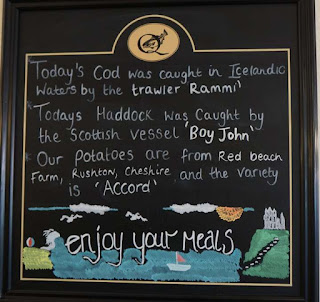 Today's Cod was caught in Icelandic
waters by the trawler 'Rammi'
Todays Haddock was Caught by
the Scottish vessel 'Boy John'
Our potatoes are from Red beach
Farm, Rushton, Cheshire and the variety
is 'Accord'
enjoy your Meals